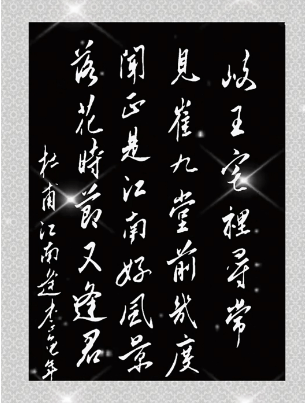 岐王宅裡尋常
見崔九堂前幾度
聞正是江南好風景
落花時節又逢君
杜甫江南逢李龜年